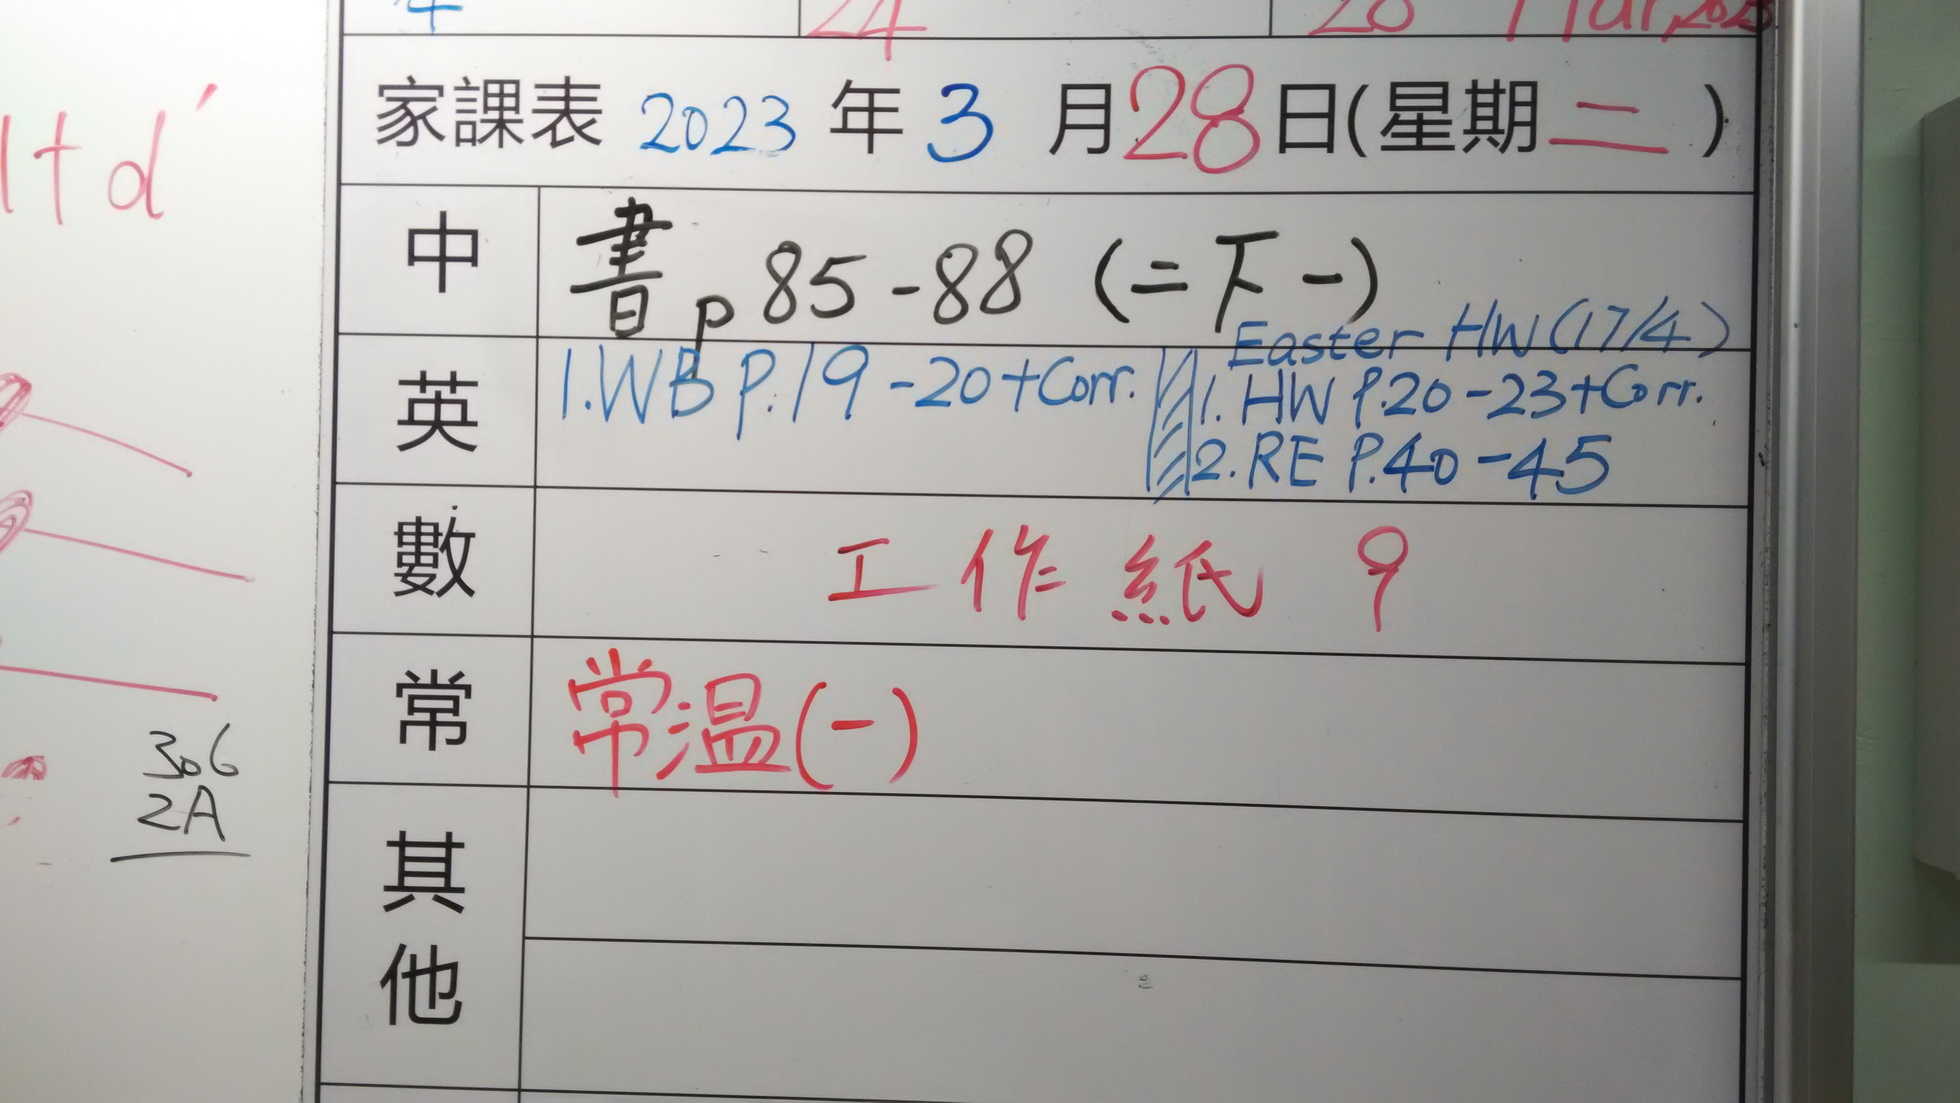 4 24 28 Mar, 2023
家課表 2023 年 3 月 28 日(星期二)
中 書 p 85-88 (二下一)
Easter HW (17/4)
英 1. WB P.19-20+Corr. 1. HW P.20-23+Corr.
2. RE P.40-45
數 工作紙 9
常 常温(一)
其他
ltd
306
2A